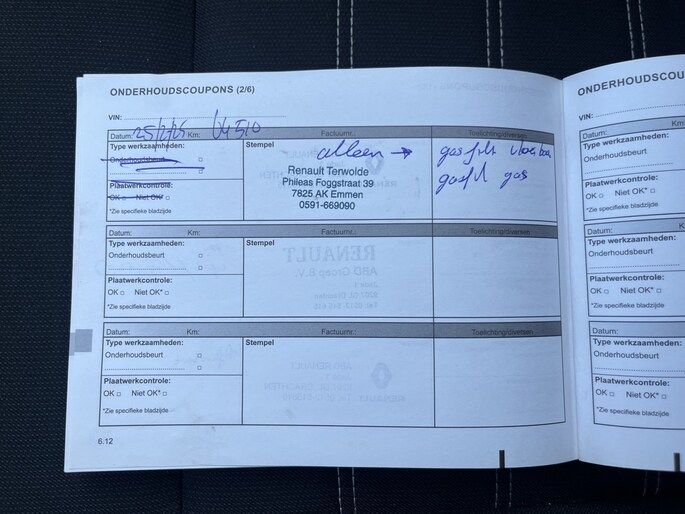 ONDERHOUDSCOUPONS (2/6)
VIN:
Datum: Km: Factuurnr.: Toelichting/diversen
Type werkzaamheden:
Onderhoudsbeurt
Plaatwerkcontrole:
OK Niet OK*
*Zie specifieke bladzijde
Stempel
alleen →
Renault Terwolde
Phileas Foggstraat 39
7825 AK Emmen
0591-669090
gas
Datum: Km: Factuurnr.: Toelichting/diversen
Type werkzaamheden:
Onderhoudsbeurt
Plaatwerkcontrole:
OK Niet OK*
*Zie specifieke bladzijde
Stempel
Datum: Km: Factuurnr.: Toelichting/diversen
Type werkzaamheden:
Onderhoudsbeurt
Plaatwerkcontrole:
OK Niet OK*
*Zie specifieke bladzijde
Stempel
6.12
ONDERHOUDSCOU
VIN:
Datum:
Type werkzaamheden:
Onderhoudsbeurt
Plaatwerkcontrole:
OK Niet OK*
*Zie specifieke bladzijde
Datum: K
Type werkzaamheden:
Onderhoudsbeurt
Plaatwerkcontrole:
OK Niet OK*
*Zie specifieke bladzijde
Datum:
Type werkzaamheden:
Onderhoudsbeurt
Plaatwerkcontrole:
OK Niet OK*
*Zie specifieke bladzijde